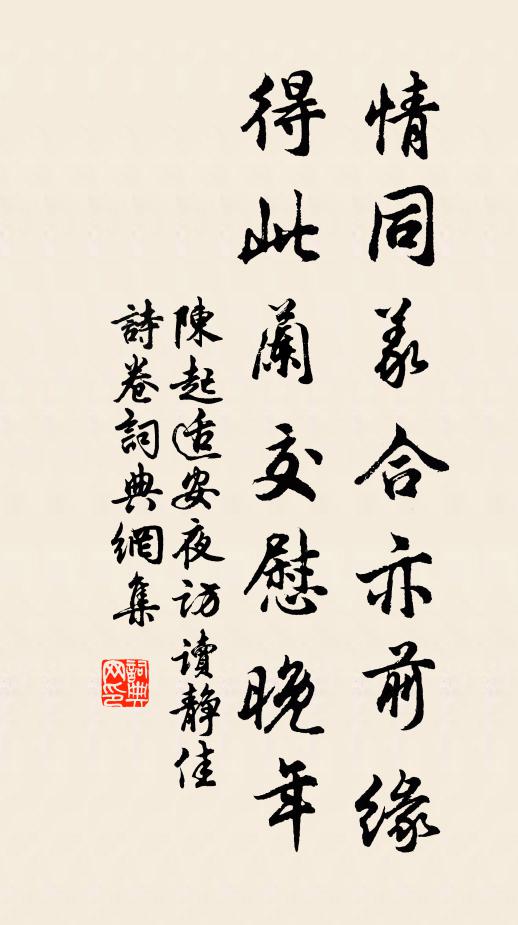 情同義合亦前緣
得此蘭交慰晚年
陳起适安夜訪讀靜佳
詩卷詞典網集
詞典網印